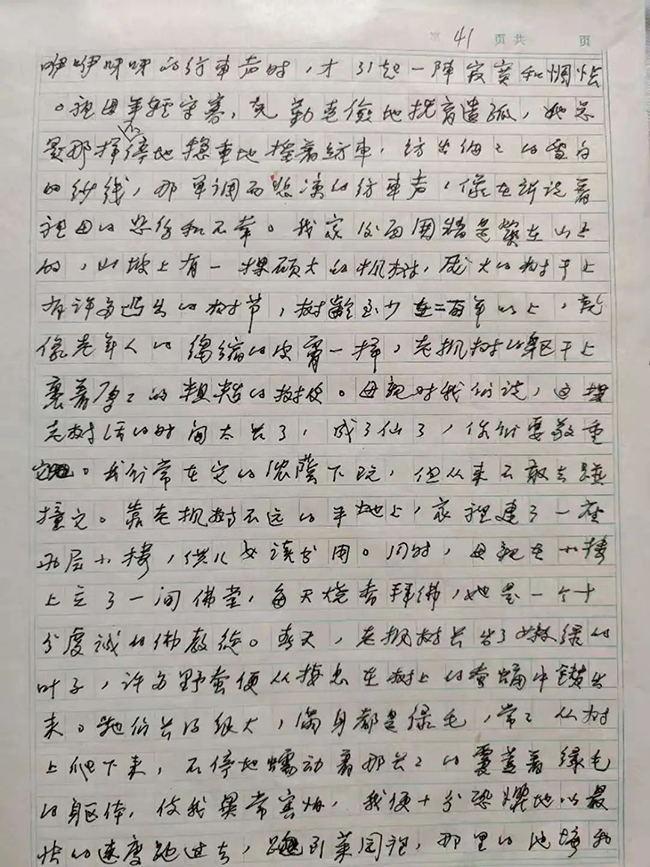 第 41 页共 页
咿咿呀呀的纺車声时，才引起一陣寂寞和惆怅
。祖母年轻守寡，克勤克儉地抚育遺孤，她总
是那样不停地搖着紡車，纺出细々的雪白
的纱线，那单调而悲凉的纺車声，像在訴说着
祖母的悲伤和不幸。我家后面围墙是築在山上
的，山坡上有一棵硕大的枫树，庞大的树干上
有许多凸出的树节，树龄至少在二百年以上，就
像老年人的皮膚一样，老枫树的躯干上
裹着厚々的粗糙的树皮。母親对我们说，这棵
老树活的时间太长了，成了仙了，你们要敬重
它。我们常在它的浓蔭下玩，但从来不敢去
撞它。靠老枫树不远的平地上，家裡建了一座
两层小楼，供儿女读书用。同时，母親在小楼
上立了一间佛堂，每天烧香拜佛，她是一个十
分虔诚的佛教徒。春天，老枫树长出了嫩绿的
叶子，许多野蚕便从掛在树上的蚕蛹中鑽出
来。她们长得很大，满身都是绿毛，常々从树
上爬下来，不停地蠕动着那长々的覆盖着绿毛
的躯体，使我異常害怕，我便十分恐懼地以最
快的速度跑过去，跑到菜园裡，那里的